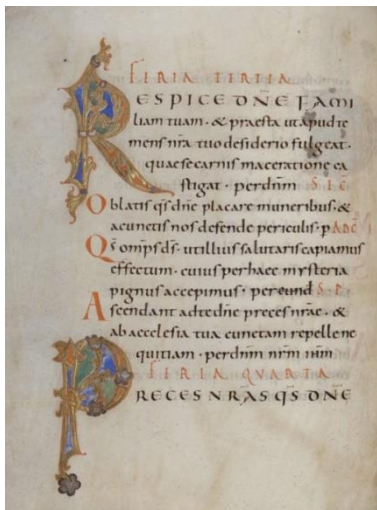 FERIA TERTIA
RESPICE DN̄E FAMI
liam tuam · & praesta ut apud te
mens nr̄a tuo desiderio fulgeat ·
quae se carnis maceratione ca
stigat · per dn̄m SĪC̄
Oblatis qs̄ dn̄e placare muneribus · &
a cunctis nos defende periculis · p̄ AD C̄
Qs̄ omp̄s d̄s · ut illius salutaris capiamus
effectum · cuius per haec mysteria
pignus accepimus · per eund S P
Ascendant ad te dn̄e preces nr̄ae · &
ab ecclesia tua cunctam repelle ne
quitiam · per dn̄m nr̄m
FERIA QVARTA
PRECES NR̄AS QS̄ DN̄E